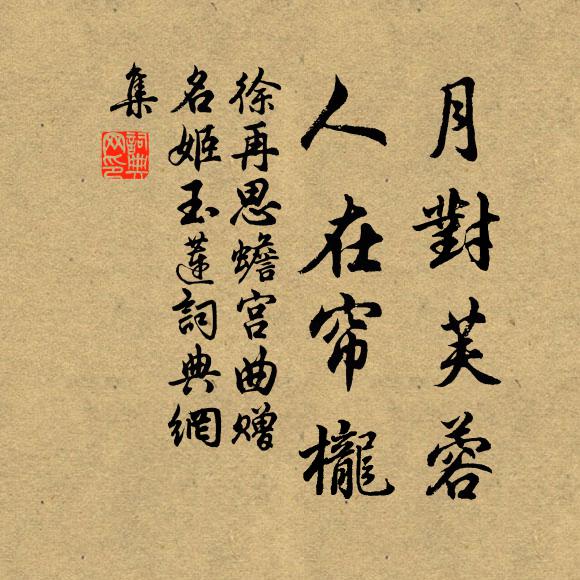 月對芙蓉
人在帘櫳
徐再思蟾宮曲贈
名姬玉蓮詞典網
集
詞典
网印